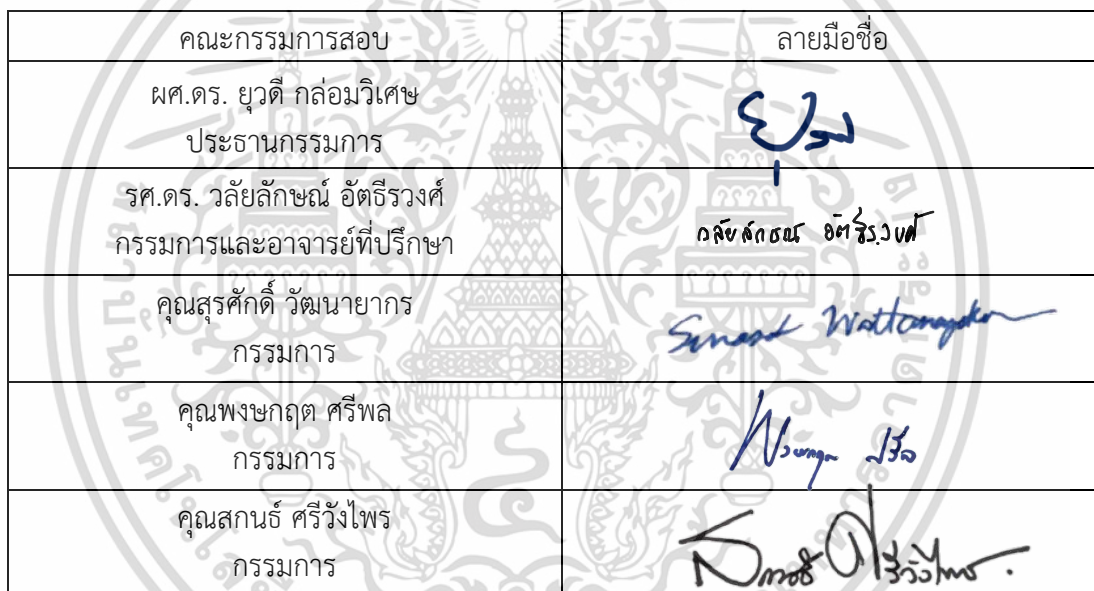 คณะกรรมการสอบ ลายมือชื่อ
ผศ.ดร. ยุวดี กล่อมวิเศษ
ประธานกรรมการ
รศ.ดร. วลัยลักษณ์ อัตธีรวงศ์
กรรมการและอาจารย์ที่ปรึกษา
วลัยลักษณ์ อัตธีรวงศ์
คุณสุรศักดิ์ วัฒนายากร
กรรมการ
คุณพงษกฤต ศรีพล
กรรมการ
คุณสกนธ์ ศรีวังไพร
กรรมการ